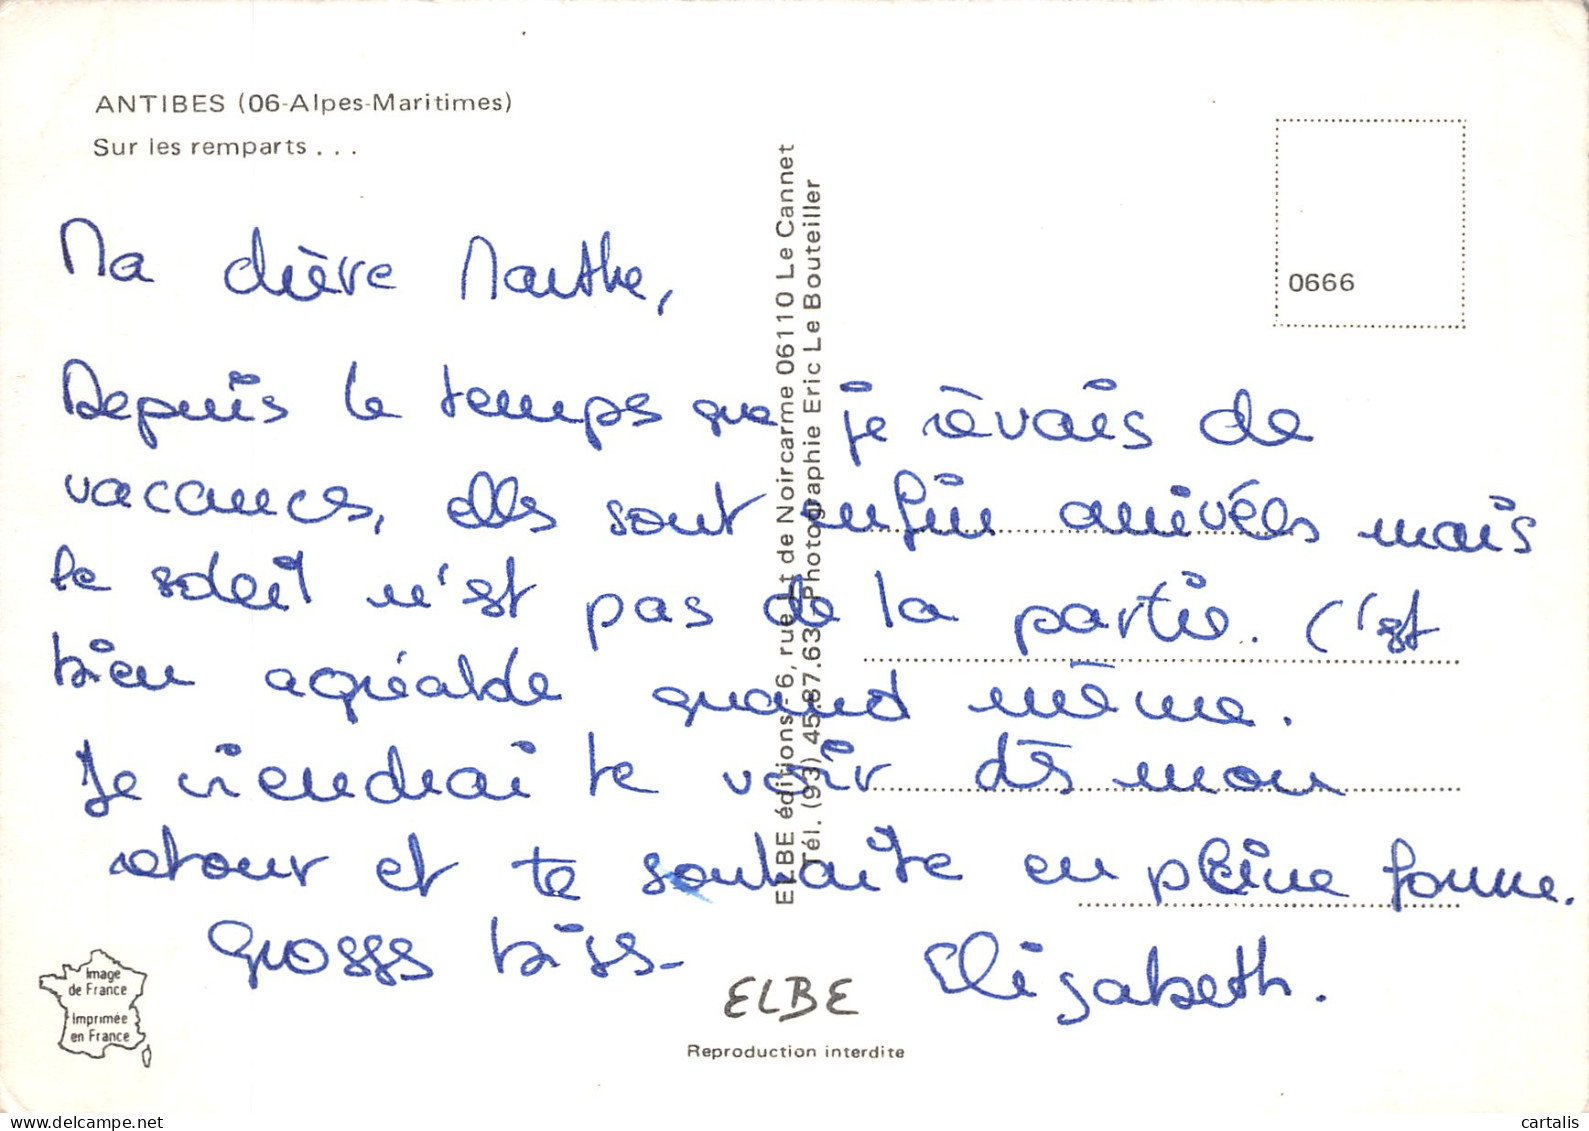 ANTIBES (06-Alpes-Maritimes)
Sur les remparts . . .
0666
Ma chère Marthe,
Depuis le temps que je rêvais de
vacances, elles sont enfin arrivées mais
le soleil n'est pas de la partie. C'est
bien agréable quand même.
Je viendrai te voir dès mon
retour et te souhaite en pleine forme.
Grosses bises
Elisabeth.
ELBE éditions - 6, rue Lt de Noircarme 06110 Le Cannet
Tél. (93) 45.87.63 Photographie Eric Le Bouteiller
Image
de France
Imprimée
en France
ELBE
Reproduction interdite
www.delcampe.net
cartalis